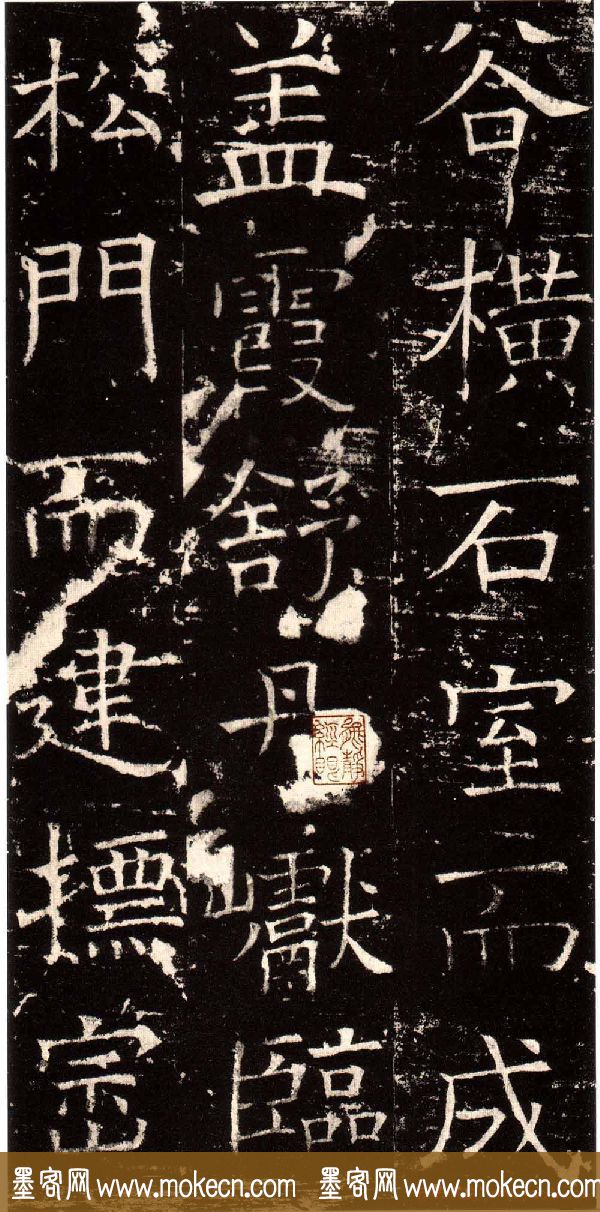 橫石室而成
盖霞舒丹巘臨
松門而建摽密
墨客网 www.mokecn.com 墨客网 www.mokecn.com